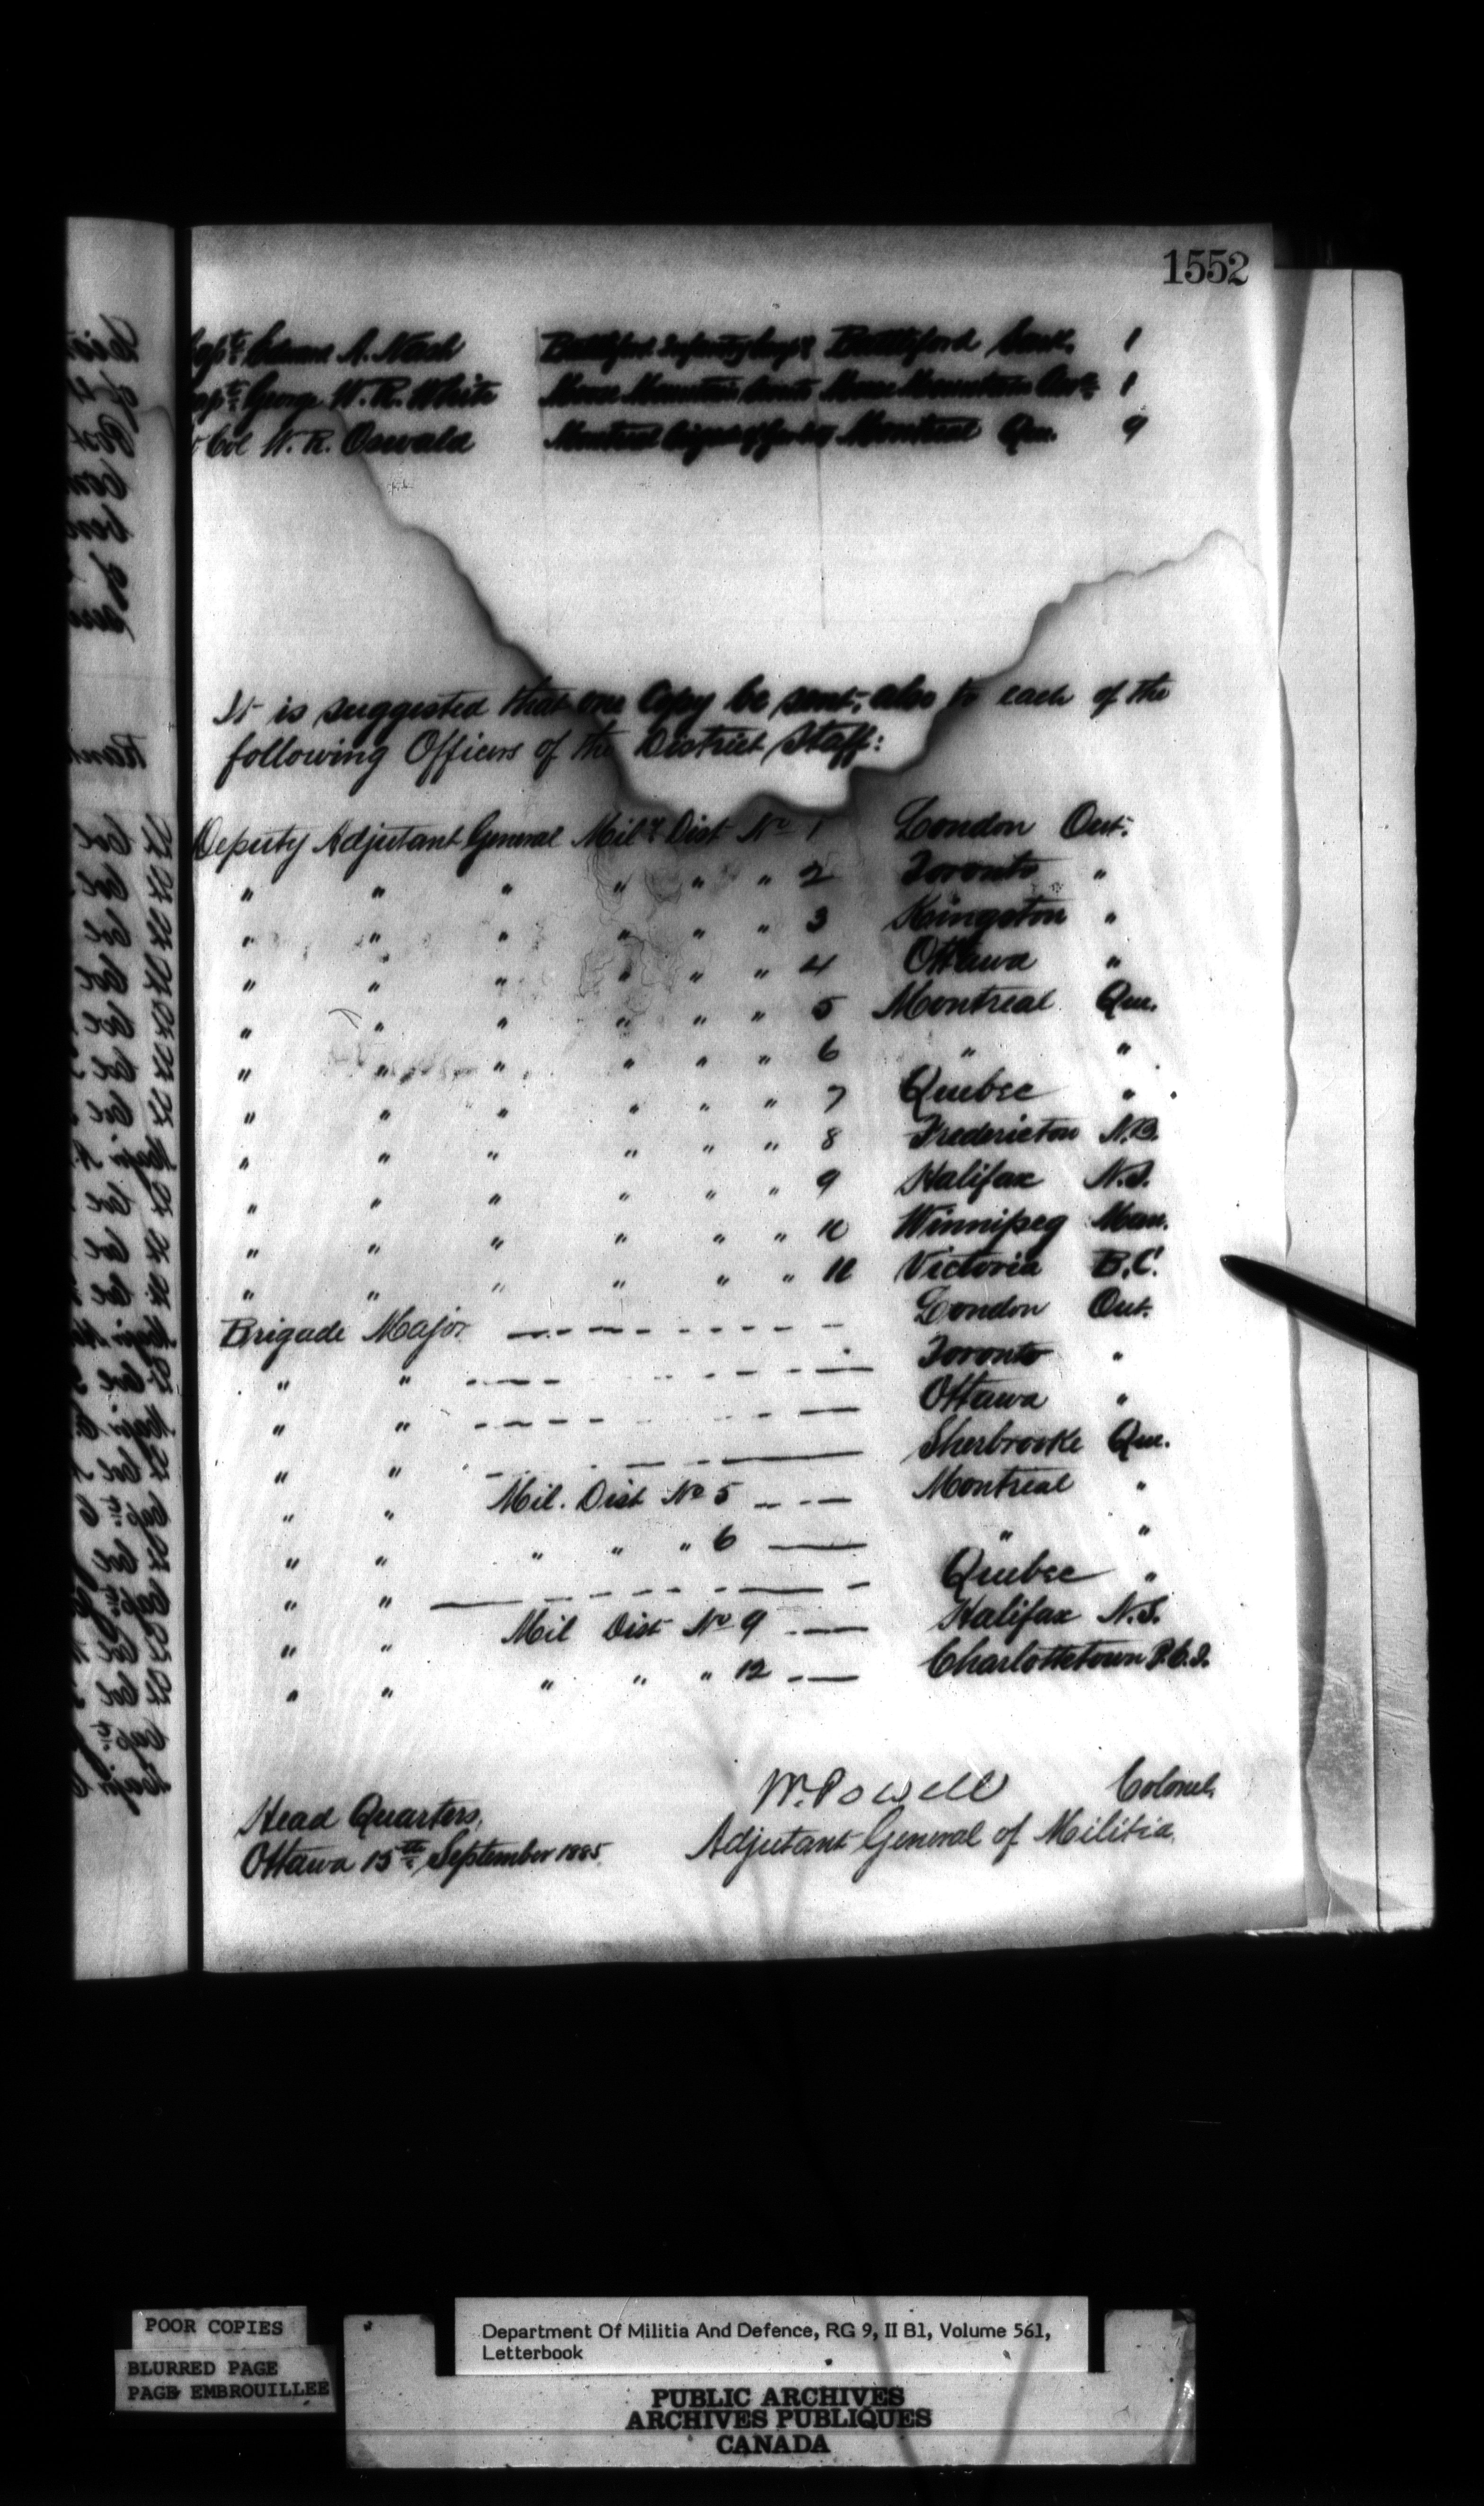 1552
Capt. Edward A. Nash Battleford Infantry Battleford 1
Capt. George W. R. White Moose Mountain Scouts Moose Mountain 1
Col W. R. Oswald Montreal Brigade of Montreal Que. 9
It is suggested that one Copy be sent, also to each of the
following Officers of the District Staff:
Deputy Adjutant General Mily Dist No 1 London Ont.
" " " " " " 2 Toronto "
" " " " " " 3 Kingston "
" " " " " " 4 Ottawa "
" " " " " " 5 Montreal Que.
" " " " " " 6 " "
" " " " " " 7 Quebec "
" " " " " " 8 Fredericton N.B.
" " " " " " 9 Halifax N.S.
" " " " " " 10 Winnipeg Man.
" " " " " " 11 Victoria B.C.
Brigade Major London Ont.
" " Toronto "
" " Ottawa "
" " Sherbrooke Que.
" " Mil. Dist No 5 Montreal "
" " " " " 6 " "
" " Quebec "
" " Mil Dist No 9 Halifax N.S.
" " " " " 12 Charlottetown P.E.I.
W. Powell Colonel,
Adjutant General of Militia.
Head Quarters,
Ottawa 15th September 1885.
POOR COPIES
BLURRED PAGE
PAGE EMBROUILLEE
Department Of Militia And Defence, RG 9, II B1, Volume 561,
Letterbook
PUBLIC ARCHIVES
ARCHIVES PUBLIQUES
CANADA